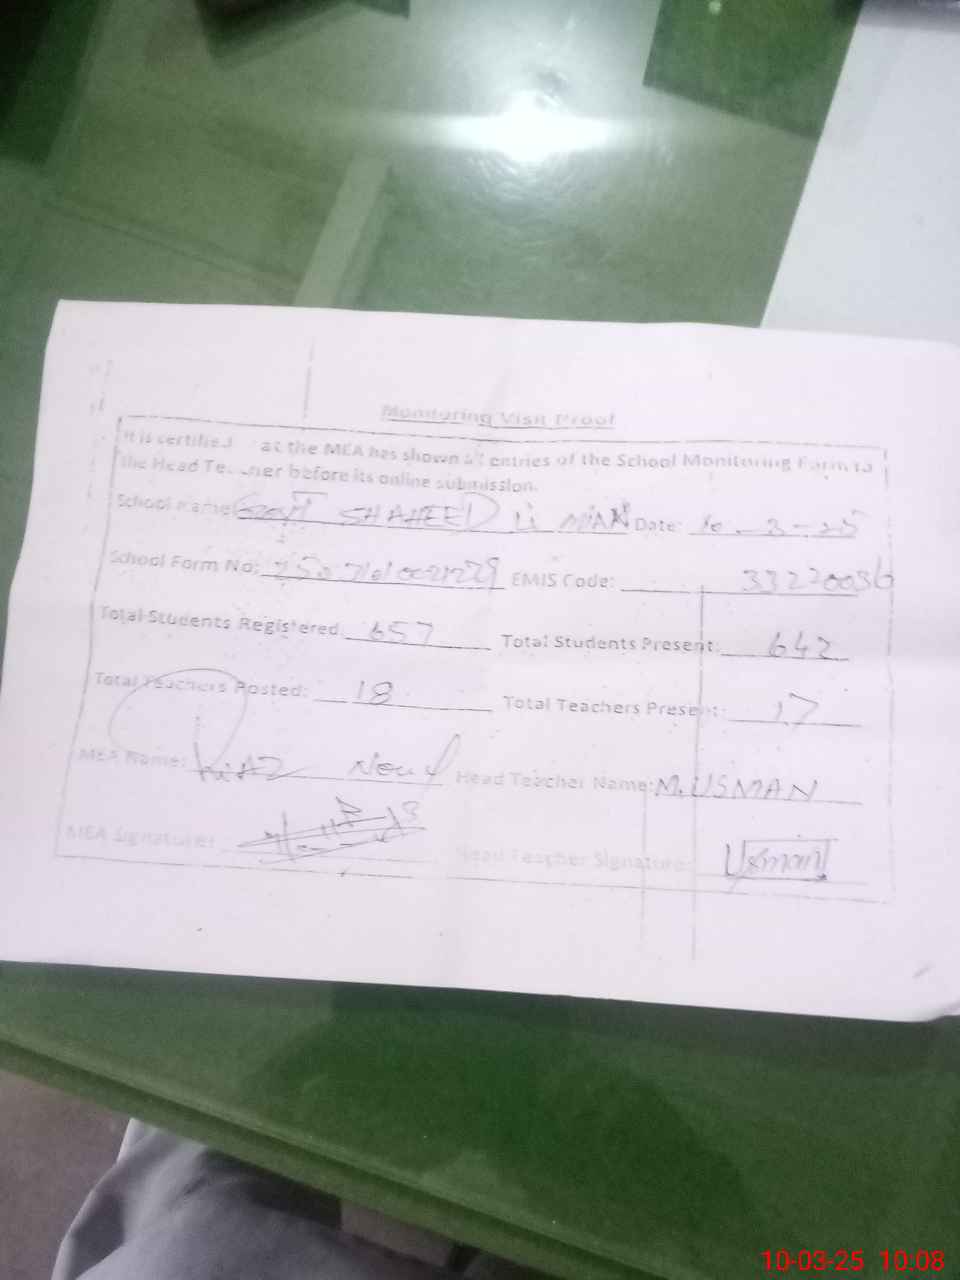 Monitoring Visit Proof
It is certified at the MEA has shown all entries of the School Monitoring Form to
the Head Teacher before its online submission.
School name: SHAHEED MIAN Date: 10-3-25
School Form No: EMIS Code: 33220036
Total Students Registered: 657 Total Students Present: 642
Total Teachers Posted: 18 Total Teachers Present: 17
MEA Name: RIAZ Head Teacher Name: M. USMAN
MEA Signature: Head Teacher Signature: Usman
10-03-25 10:08